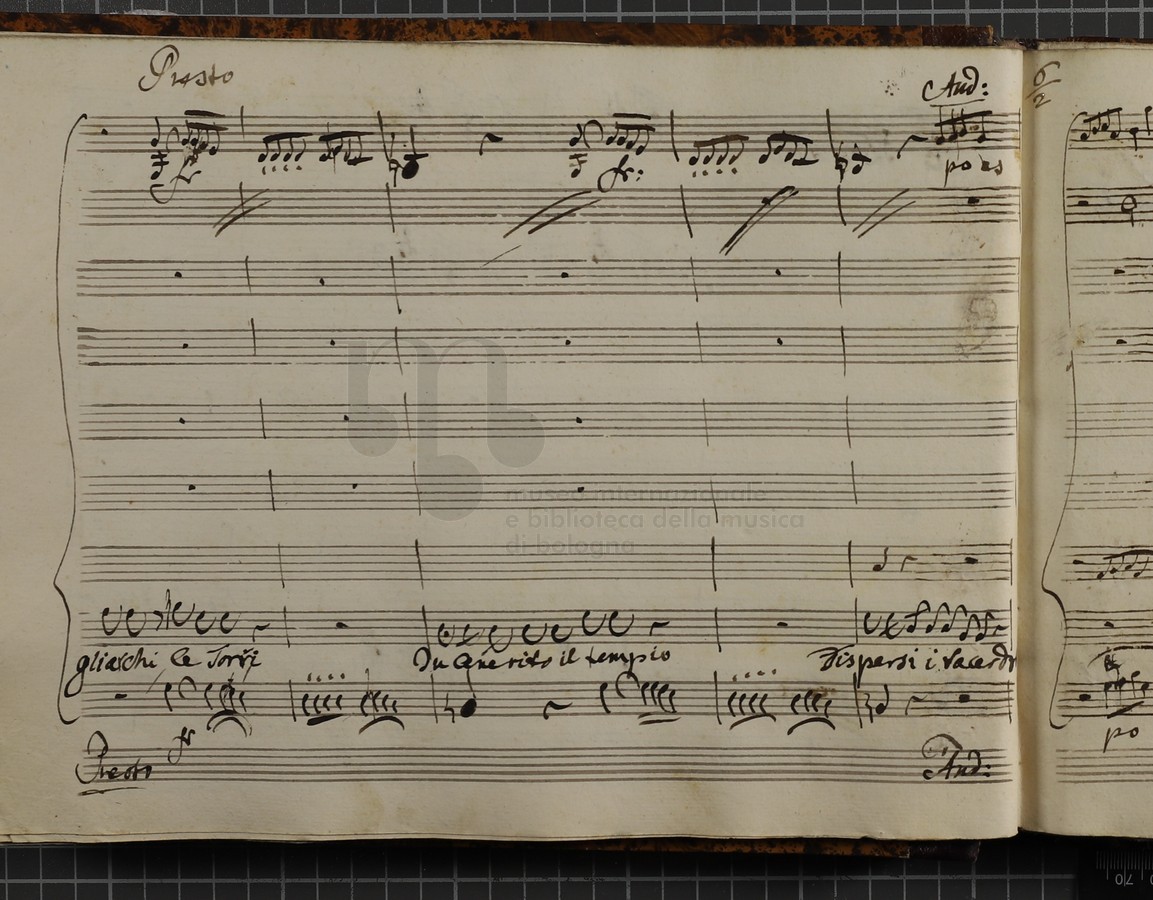 Presto
And:
6
2
fr
fr:
po as
po
museo internazionale
e biblioteca della musica
di bologna
gliaschi le Torri
Incenerito il tempio
Dispersi i Sacerdo
fr
Presto
And:
70